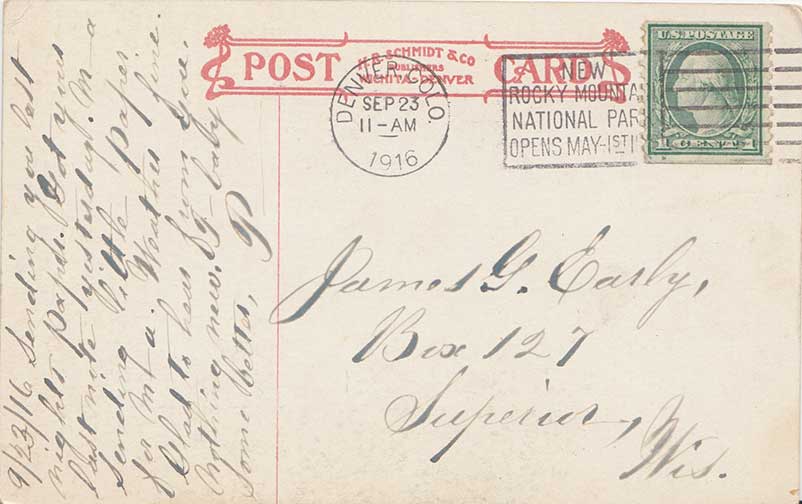 POST CARD
H.B. SCHMIDT & CO
PUBLISHERS
WICHITA-DENVER
DENVER, COLO.
SEP 23
11-AM
1916
NEW
ROCKY MOUNTA
NATIONAL PAR
OPENS MAY-1ST 1
U.S. POSTAGE
1 CENT 1
9/23/16 Sending you last
nights paper. Got yours
last nite yesterday. M a
Sending little paper
for M a. Weather fine.
Glad to hear from you.
Nothing new. F. baby
some better,
P
James G. Early,
Box 127
Superior,
Wis.